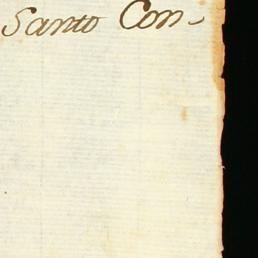 Santo Con-